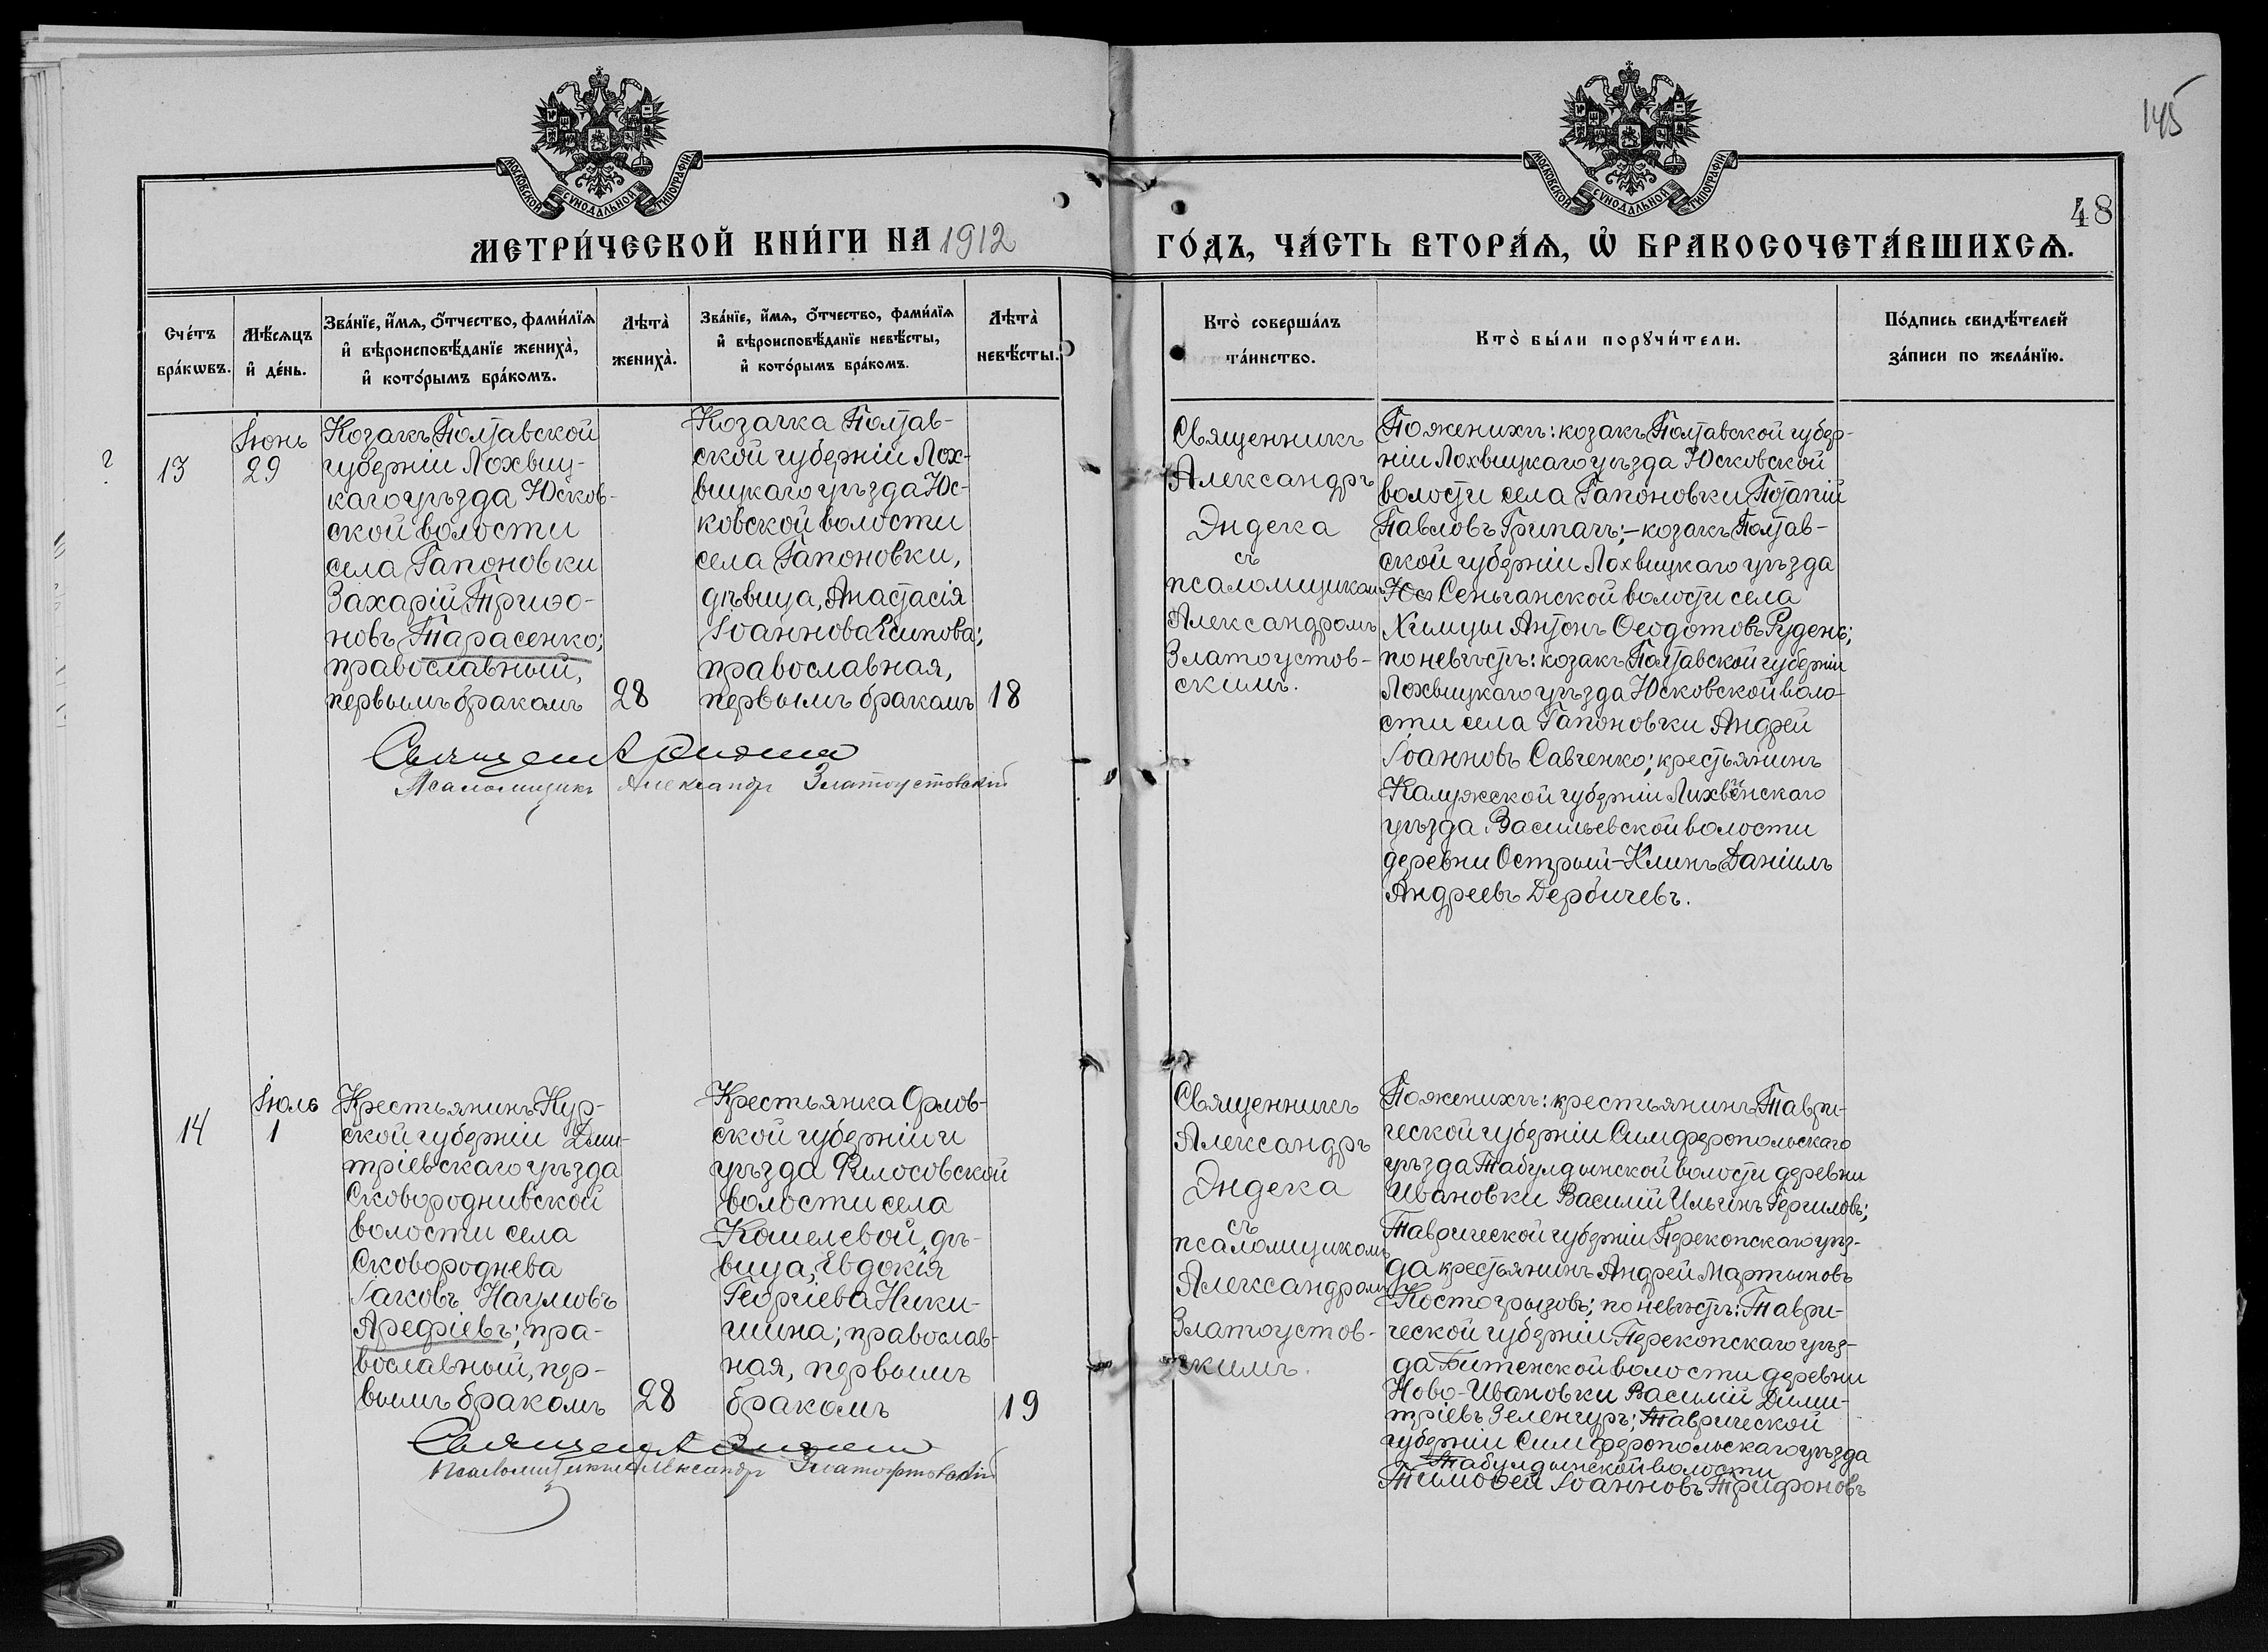 145
48
МОСКОВСКОЙ СѴНОДАЛЬНОЙ ТИПОГРАФІИ
МОСКОВСКОЙ СѴНОДАЛЬНОЙ ТИПОГРАФІИ
МЕТРИ́ЧЕСКОЙ КНИ́ГИ НА 1912
ГО́ДЪ, ЧА́СТЬ ВТОРА́Ѧ, Ѡ҆ БРАКОСОЧЕТА́ВШИХСѦ.
Сче́тъ
бра́кѡвъ.
Мѣ́сѧцъ
и҆ де́нь.
Зва́нїе, и҆́мѧ, ѻ҆́тчество, фами́лїѧ
и҆ вѣроисповѣ́данїе жениха̀,
и҆ кото́рымъ бра́комъ.
Лѣта̀
жениха̀.
Зва́нїе, и҆́мѧ, ѻ҆́тчество, фами́лїѧ
и҆ вѣроисповѣ́данїе невѣ́сты,
и҆ кото́рымъ бра́комъ.
Лѣта̀
невѣ́сты.
Кто̀ соверша́лъ
та́инство.
Кто̀ бы́ли порꙋчи́тели.
По́дпись свидѣ́телей
за́писи по жела́нїю.
?
13
Іюнь
29
Козакъ Полтавской
губерніи Лохвиц-
каго уѣзда Юсков-
ской волости
села Гапоновки
Захарій Трифо-
новъ Тарасенко;
православный,
первымъ бракомъ
28
Козачка Полтав-
ской губерніи Лох-
вицкаго уѣзда Юс-
ковской волости
села Гапоновки,
дѣвица, Анастасія
Іоаннова Есипова;
православная,
первымъ бракомъ
18
Псаломщикъ Александръ Златоустовскій
Священникъ
Александръ
Эндека
съ
псаломщикомъ
Александромъ
Златоустов-
скимъ.
По женихѣ: козакъ Полтавской губер-
ніи Лохвицкаго уѣзда Юсковской
волости села Гапоновки Потапій
Павловъ Грипачъ;- козакъ Полтав-
ской губерніи Лохвицкаго уѣзда
Юс Сеньчанской волости села
Хитцы Антонъ Ѳеодотовъ Руденъ;
по невѣстѣ: козакъ Полтавской губерніи
Лохвицкаго уѣзда Юсковской воло-
сти села Гапоновки Андрей
Іоанновъ Савченко; крестьянинъ
Калужской губерніи Лихвинскаго
уѣзда Васильевской волости
деревни Острый-Клинъ Даніилъ
Андреевъ Дербичевъ.
14
Іюль
1
Крестьянинъ Кур-
ской губерніи Дми-
тріевскаго уѣзда
Сковороднивской
волости села
Сковороднева
Іаковъ Наумовъ
Арефіевъ; пра-
вославный, пер-
вымъ бракомъ
28
Крестьянка Орлов-
ской губерніи и
уѣзда Философской
волости села
Кошелевой, дѣ-
вица, Евдокія
Георгіева Ники-
шина; православ-
ная, первымъ
бракомъ
19
Псаломщикъ Александръ Златоустовскій
Священникъ
Александръ
Эндека
съ
псаломщикомъ
Александромъ
Златоустов-
скимъ.
По женихѣ: крестьянинъ Таври-
ческой губерніи Симферопольскаго
уѣзда Табулдынской волости деревни
Ивановки Василій Ильинъ Гергиловъ;
Таврической губерніи Перекопскаго уѣз-
да крестьянинъ Андрей Мартыновъ
Костогрызовъ; по невѣстѣ: Таври-
ческой губерніи Перекопскаго уѣз-
да Битенской волости деревни
Ново-Ивановки Василій Дими-
тріевъ Зеленгуръ; Таврической
губерніи Симферопольскаго уѣзда
Табулдынской волости
Тимоѳей Іоанновъ Трифоновъ